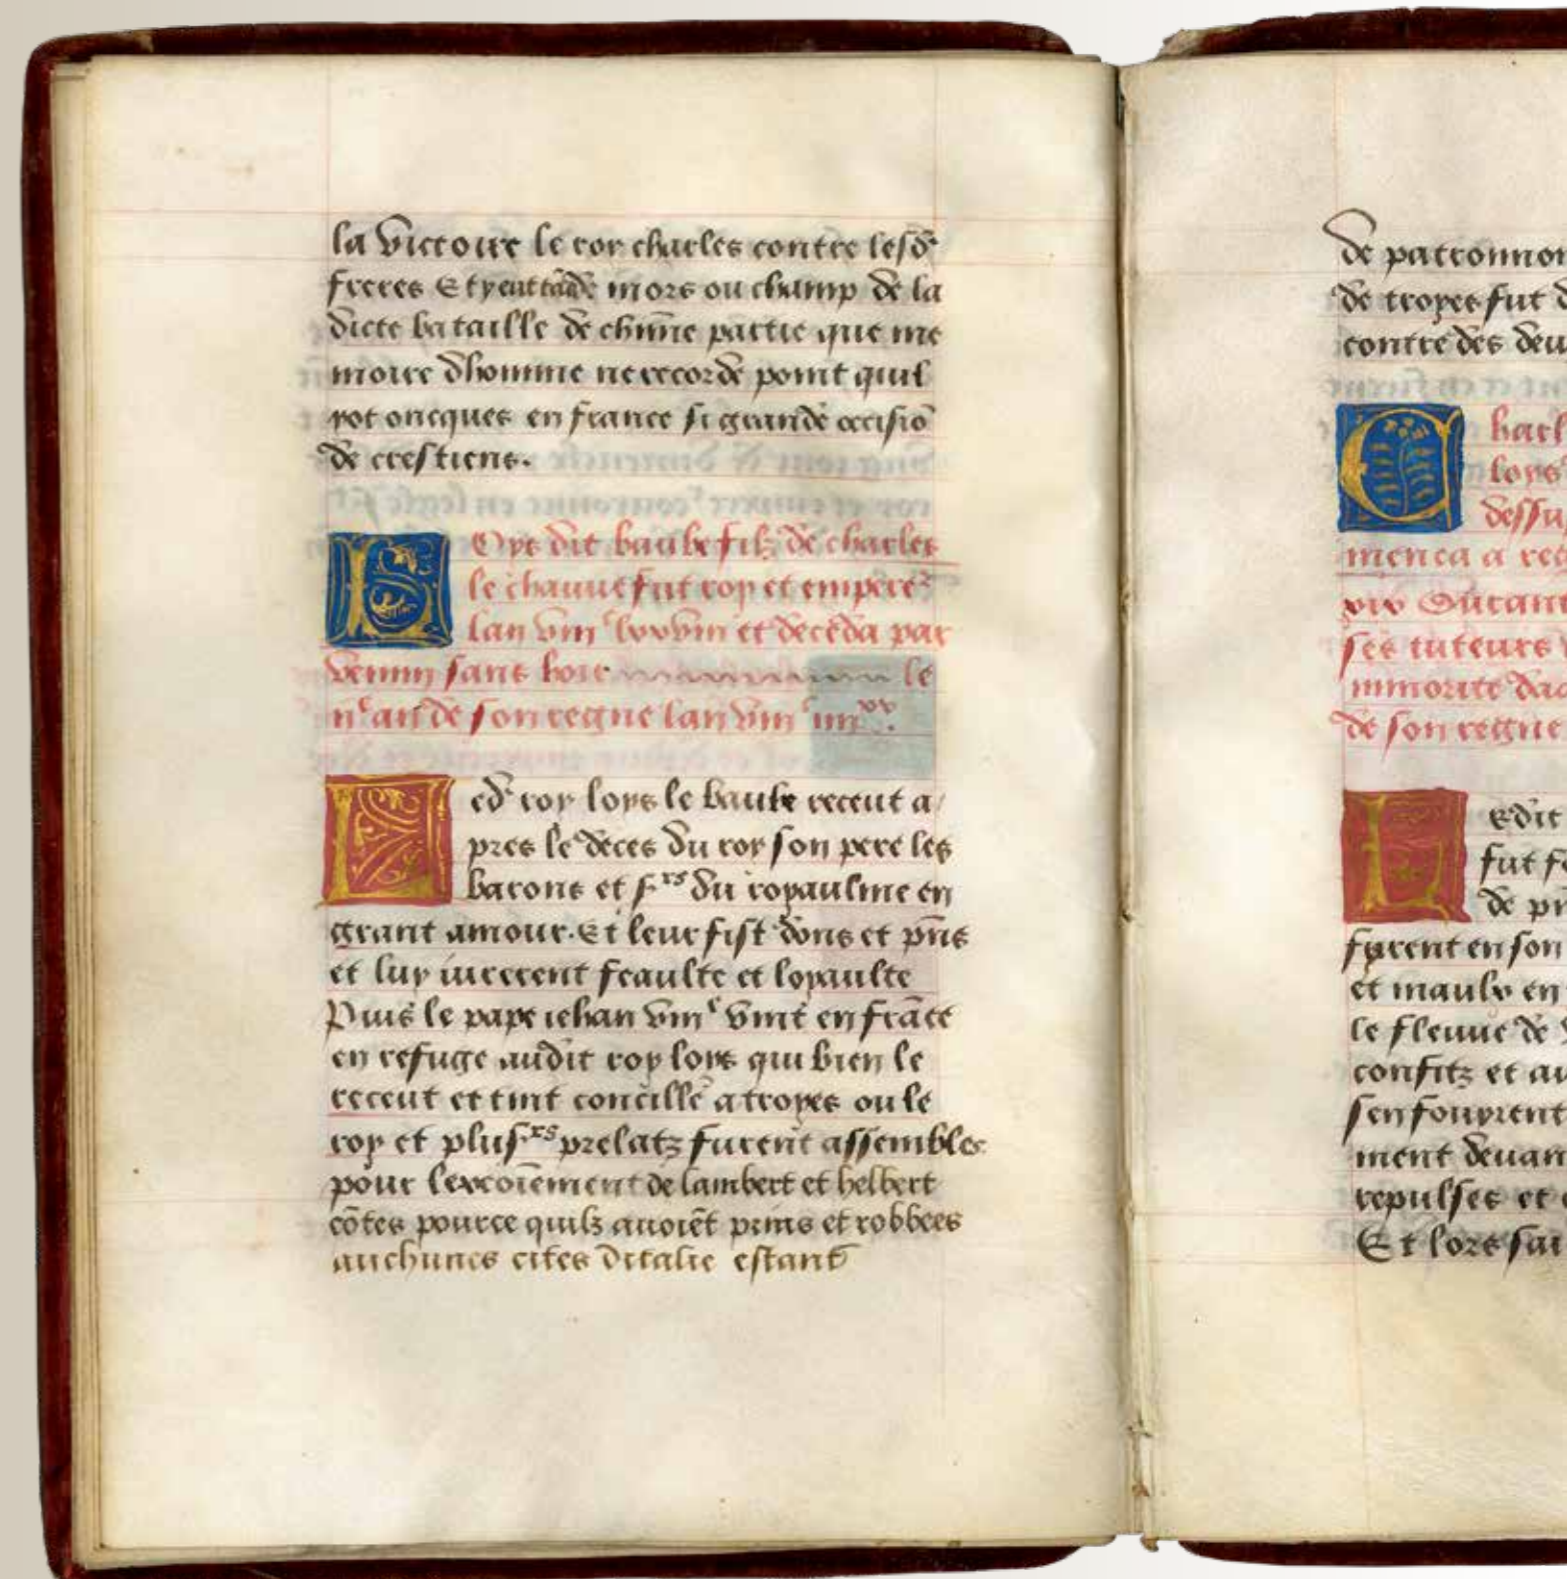 la victoire le roy charles contre lesd
freres Et y eut tãt de mors ou champ de la
dicte bataille de chũne partie que me
moire dhomme ne recorde point quil
yot oncques en france si grande occisiõ
de crestiens.
LOys dit baube filz de charles
le chauue fut roy et empere
lan viii^c lxxviii et deceda par
venin sans hoir le
ii^e an de son regne lan viii^c iiii^xx.
Led roy loys le baube receut a
pres le deces du roy son pere les
barons et s^rs du royaulme en
grant amour. Et leur fist dons et pñs
et luy iurerent feaulte et loyaulte
Puis le pape iehan viii^e vint en frãce
en refuge audit roy loys qui bien le
receut et tint concille a troyes ou le
roy et plus^rs prelatz furent assembles
pour lexcoiement de lambert et helbert
cõtes pource quilz auoiẽt prins et robbees
auchunes cites ditalie estant
de patronno
de troyes fut d
contre des deu
Charl
loys
dessu
menca a reg
Durant
ses tuteurs
minorite da
de son regne
Ledit
fut fo
de pr
furent en son
et maulx en
le fleuue de
confitz et au
sen fouyrent
ment deuan
repulses et
Et lors sai